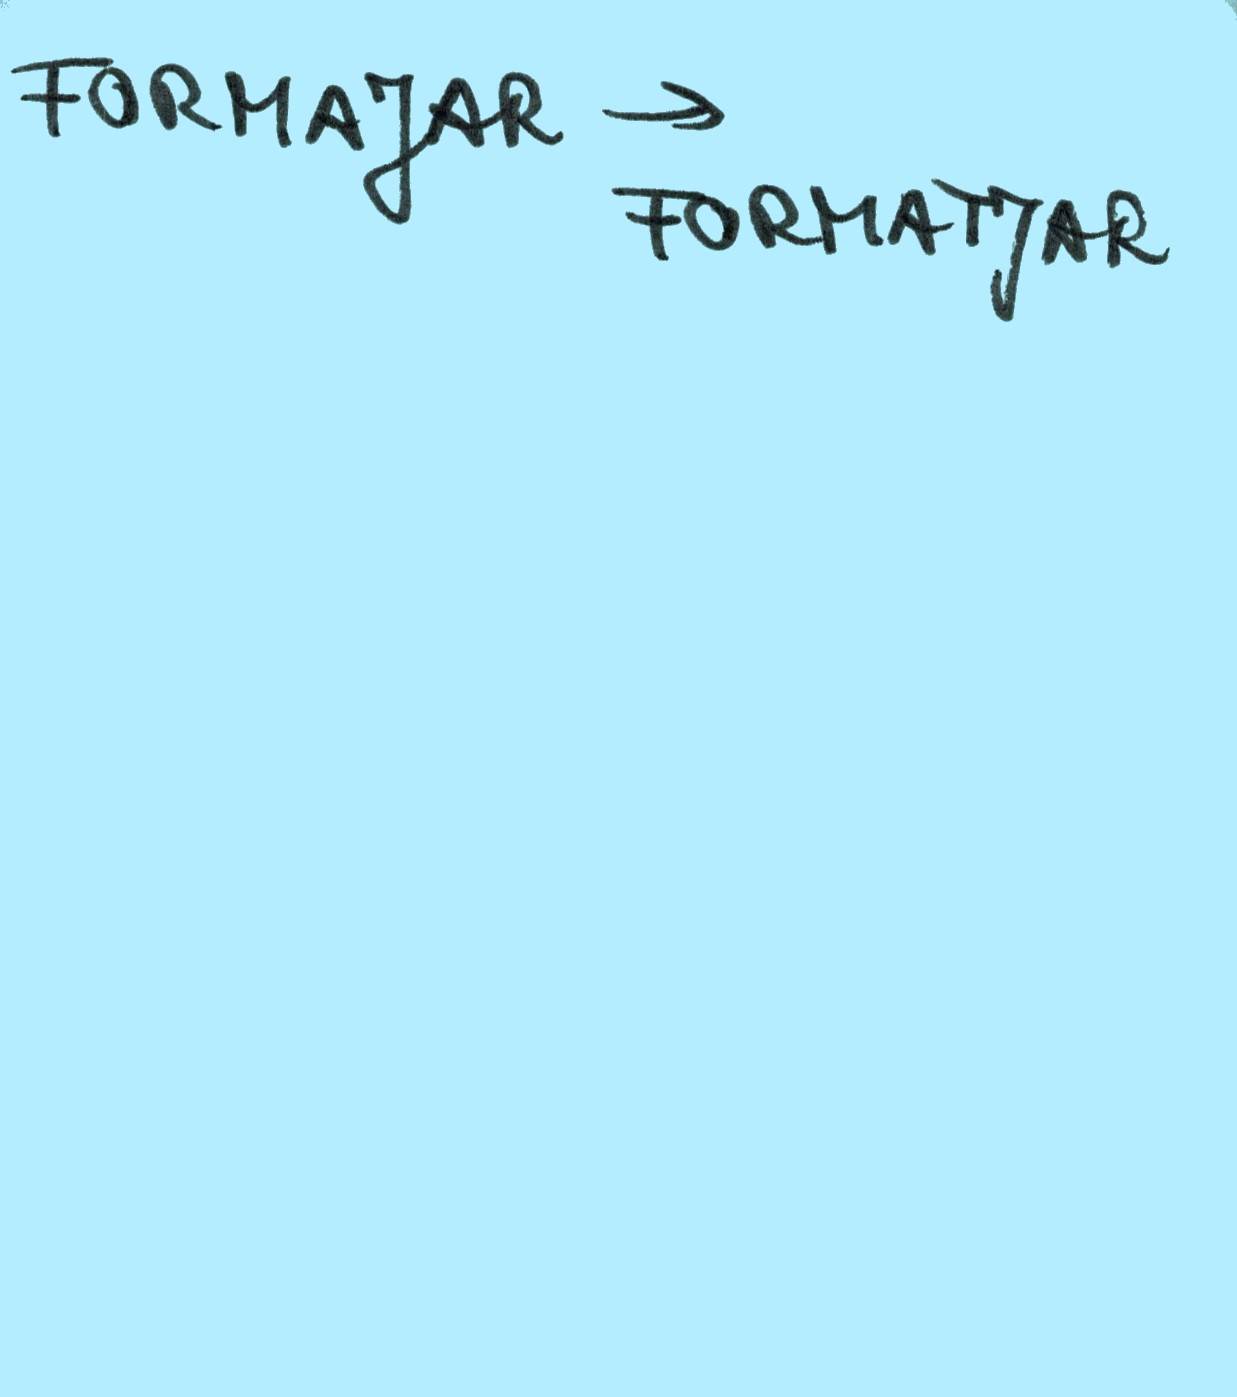 FORMAJAR →
FORMATJAR